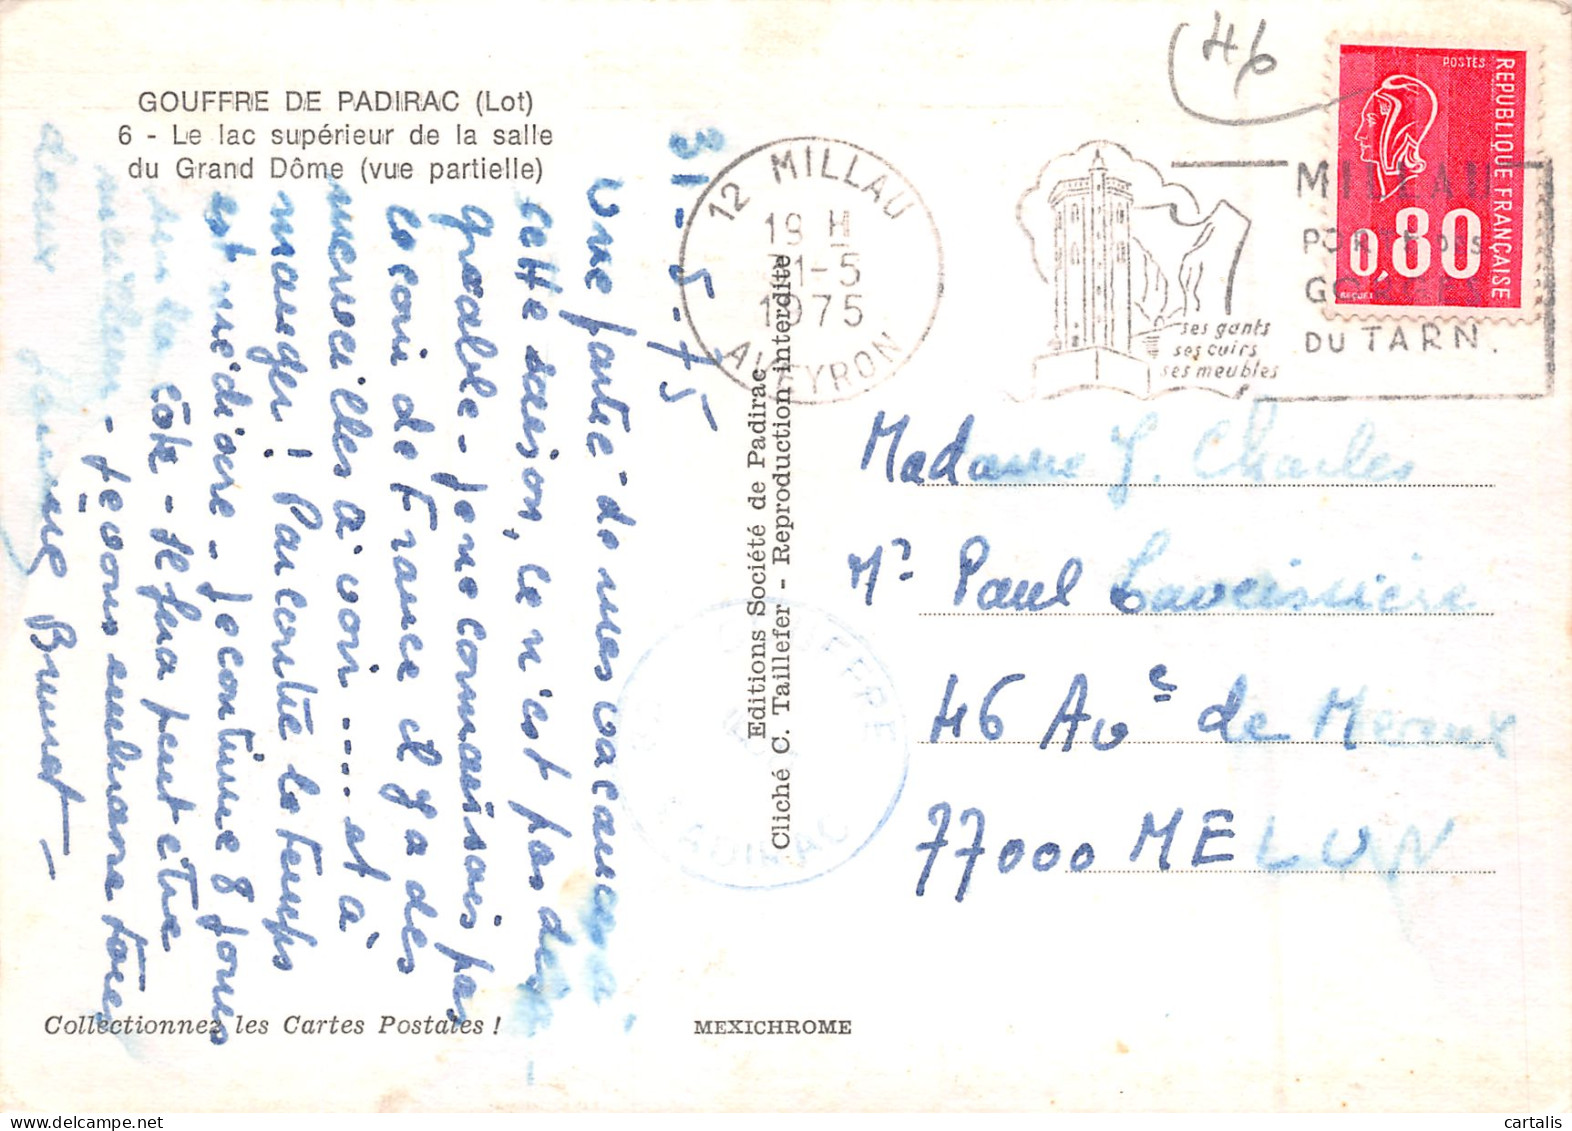 GOUFFRE DE PADIRAC (Lot)
6 - Le lac supérieur de la salle
du Grand Dôme (vue partielle)
31-5-75
Une partie de mes vacances à
cette saison, ce n'est pas dés
gréable - je ne connaissais pas
ce coin de France il y a des
merveilles à voir .... et à
manger ! Par contre le temps
est médiocre - Je continue 8 jours
côte - Il fera peut être
meilleur - Recevez
deux Brunet -
Collectionnez les Cartes Postales !
Editions Société de Padirac
Cliché C. Taillefer - Reproduction interdite
MEXICHROME
GOUFFRE
PADIRAC
12 MILLAU
19 H
-5
1975
AVEYRON
ses gants
ses cuirs
ses meubles
MILLAU
PORTE DES
GORGES
DU TARN.
46
POSTES
REPUBLIQUE FRANÇAISE
0,80
BEQUET
Madame J. Charles
Mr Paul
46 Ave de
77000 MELUN
cartalis